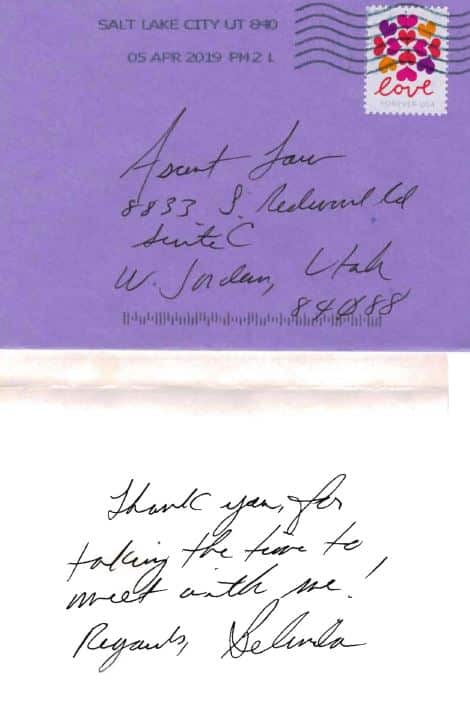 SALT LAKE CITY UT 840
05 APR 2019 PM 2 L
love
FOREVER USA
Ascent Law
8833 S. Redwood Rd
Suite C
W. Jordan, Utah
84088
Thank you, for
taking the time to
meet with me!
Regards, Belinda